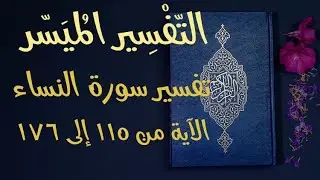 التَّفْسِير المُيَسّر
تفسير سورة النساء
الآية من ١١٥ إلى ١٧٦